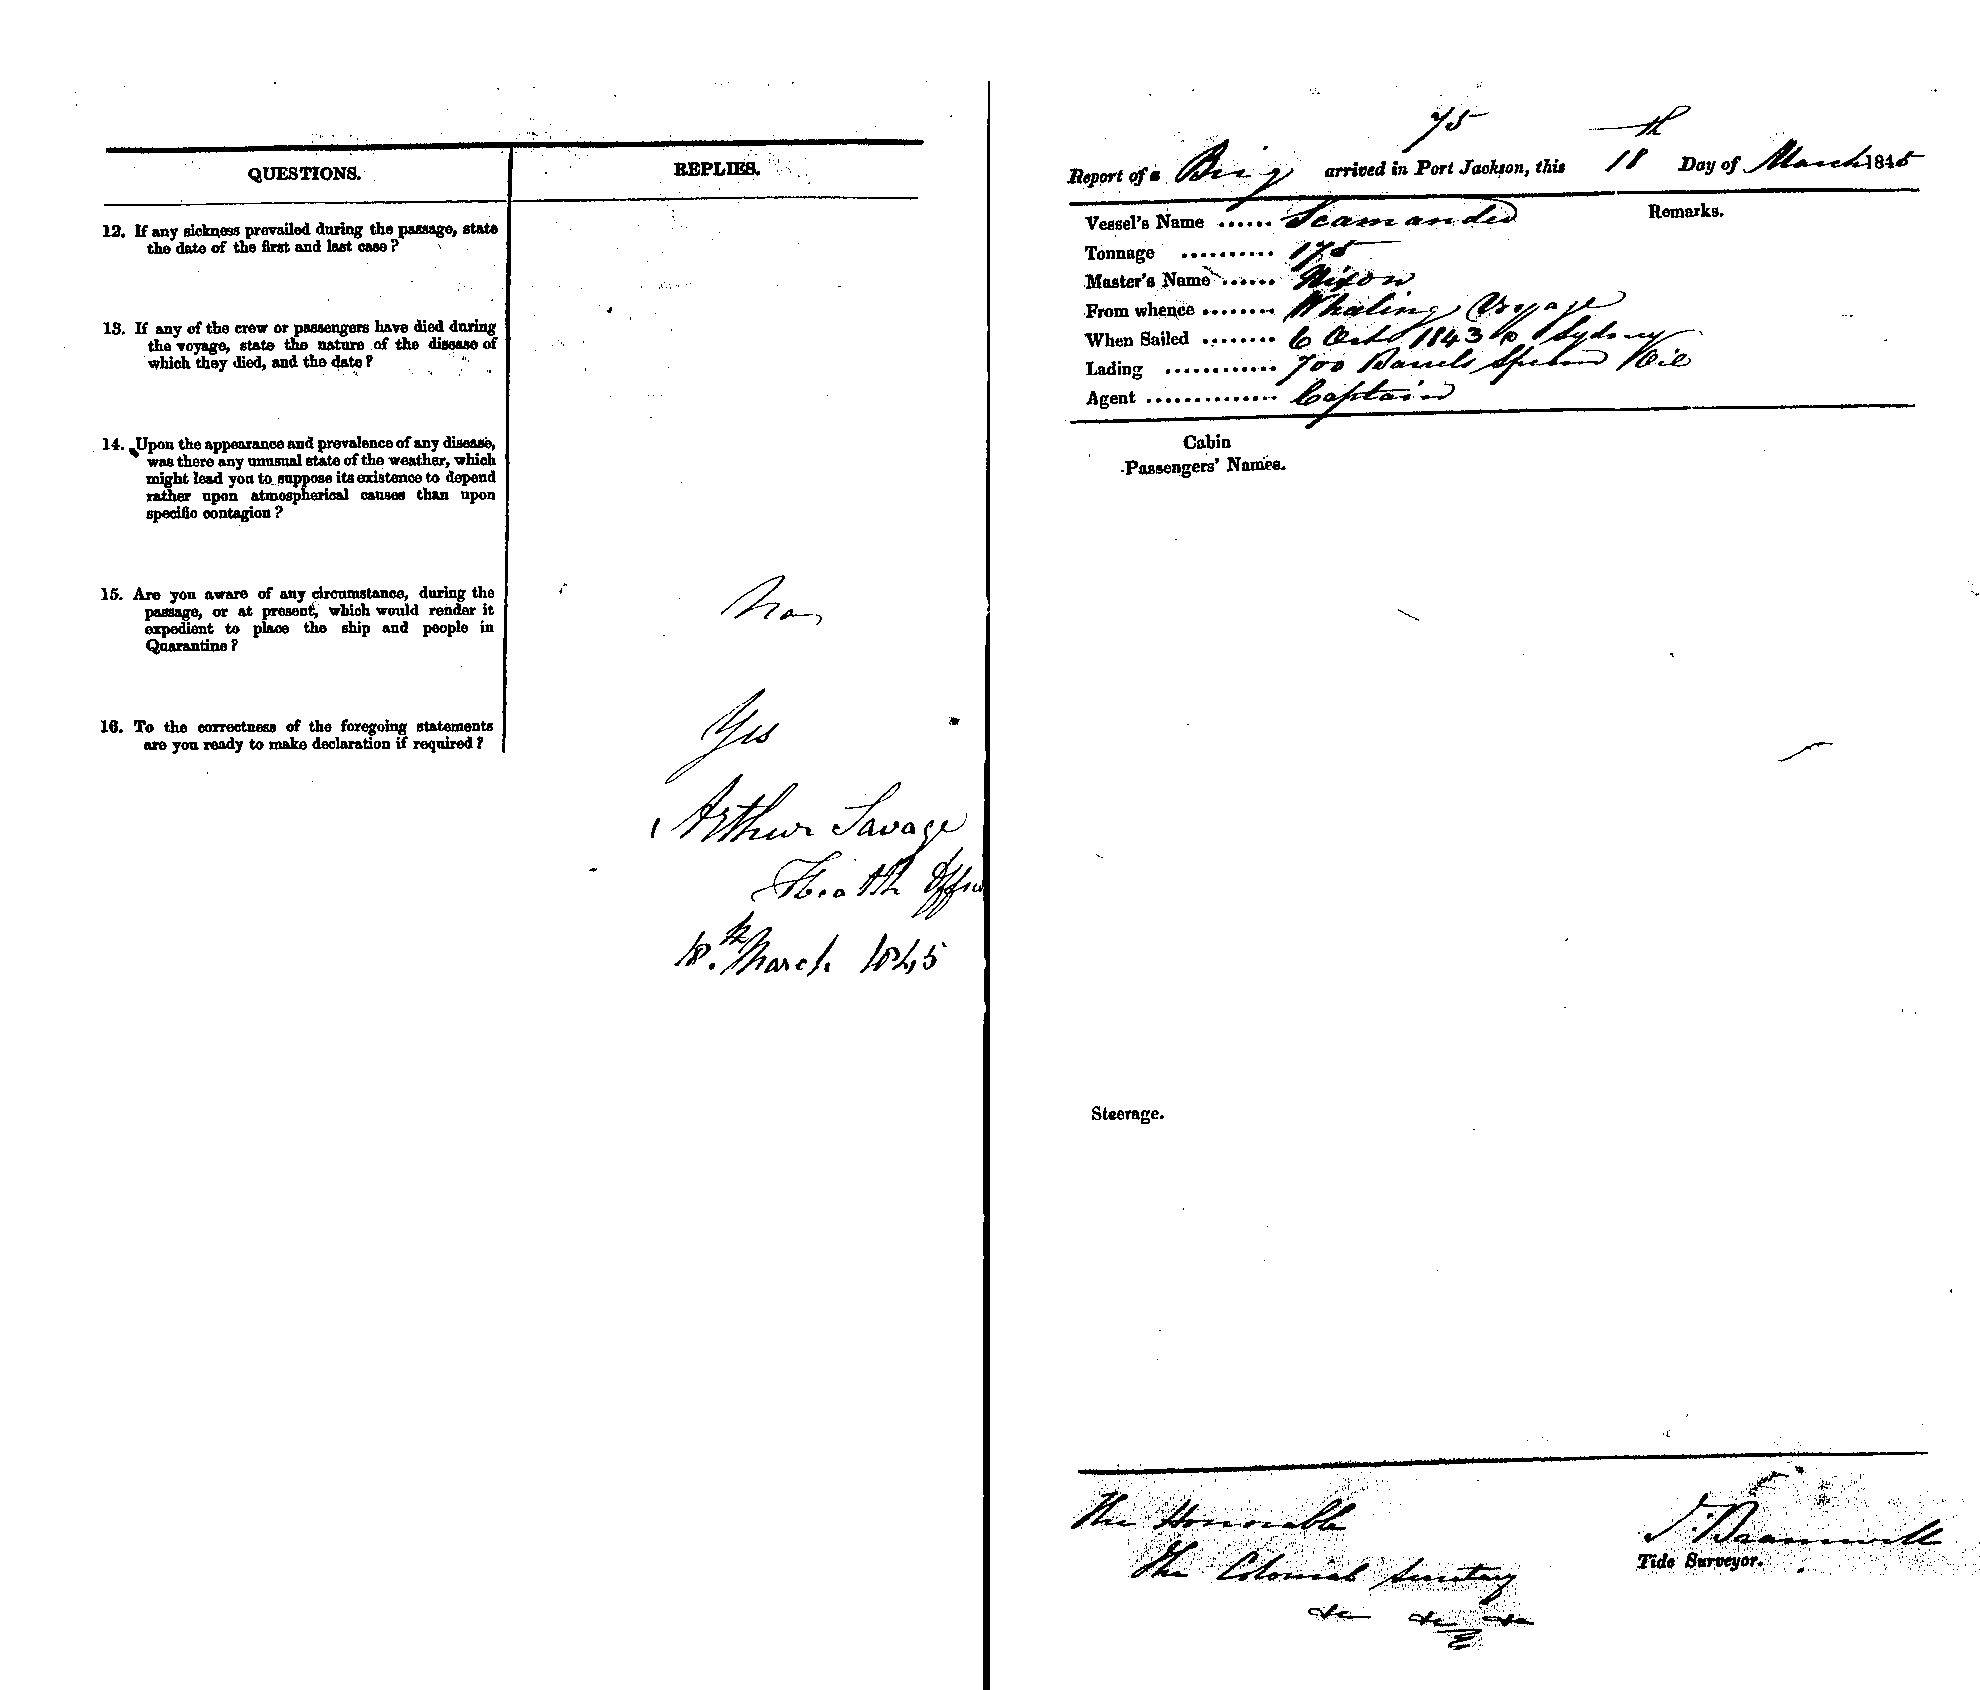 QUESTIONS.
REPLIES.
12. If any sickness prevailed during the passage, state
the date of the first and last case ?
13. If any of the crew or passengers have died during
the voyage, state the nature of the disease of
which they died, and the date ?
14. Upon the appearance and prevalence of any disease,
was there any unusual state of the weather, which
might lead you to suppose its existence to depend
rather upon atmospherical causes than upon
specific contagion ?
15. Are you aware of any circumstance, during the
passage, or at present, which would render it
expedient to place the ship and people in
Quarantine ?
No
16. To the correctness of the foregoing statements
are you ready to make declaration if required ?
Yes
Arthur Savage
Health Office
18th March 1845
75
Report of a Brig arrived in Port Jackson, this 18th Day of March 1845
Remarks.
Vessel's Name ...... Scamander
Tonnage .......... 175
Master's Name ...... Nixon
From whence ........ Whaling Voyage
When Sailed ........ 6 Oct 1843 Sydney
Lading ............ 700 Barrels Sperm Oil
Agent .............. Captain
Cabin
Passengers' Names.
Steerage.
The Honorable
The Colonial Secretary
&c &c &c
T. Bramwell
Tide Surveyor.